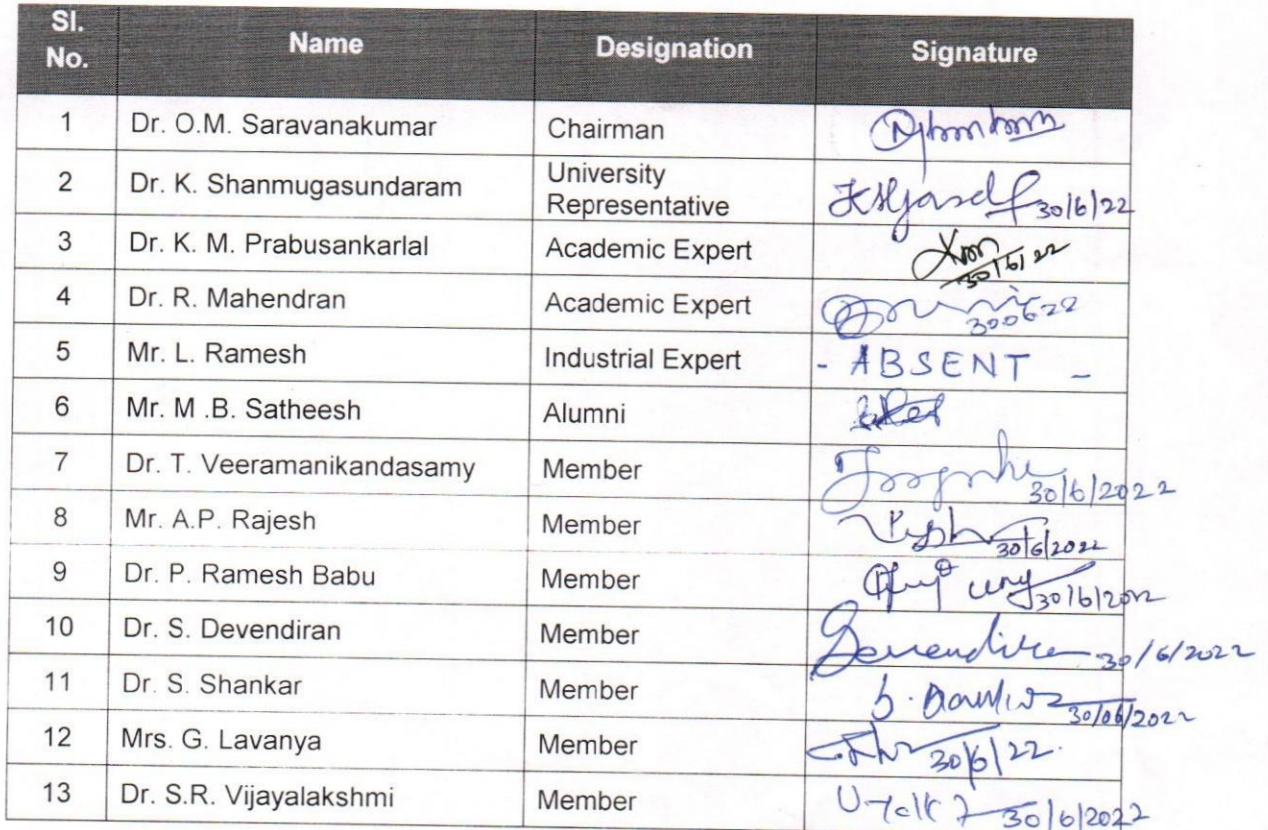 Sl. No. Name Designation Signature
1 Dr. O.M. Saravanakumar Chairman
2 Dr. K. Shanmugasundaram University Representative 30/6/22
3 Dr. K. M. Prabusankarlal Academic Expert 30/6/22
4 Dr. R. Mahendran Academic Expert 300622
5 Mr. L. Ramesh Industrial Expert - ABSENT -
6 Mr. M .B. Satheesh Alumni
7 Dr. T. Veeramanikandasamy Member 30/6/2022
8 Mr. A.P. Rajesh Member 30/6/2022
9 Dr. P. Ramesh Babu Member 30/6/2022
10 Dr. S. Devendiran Member 30/6/2022
11 Dr. S. Shankar Member 30/06/2022
12 Mrs. G. Lavanya Member 30/6/22.
13 Dr. S.R. Vijayalakshmi Member 30/6/2022